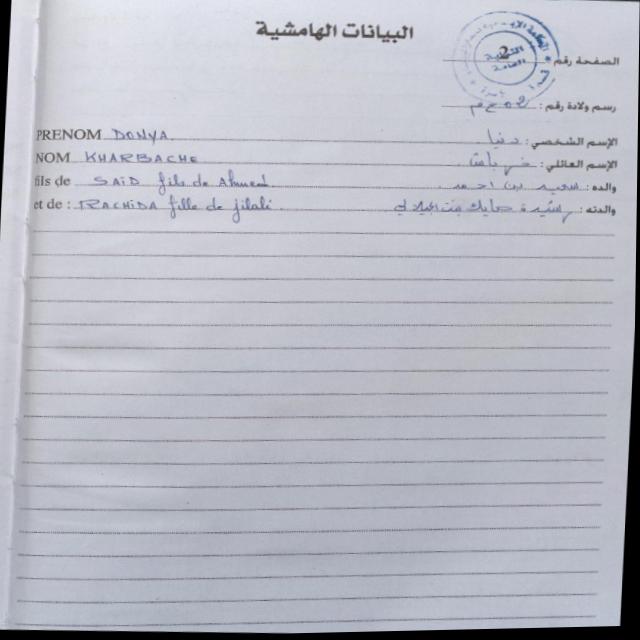 البيانات الهامشية
الصفحة رقم : 2
رسم ولادة رقم :
PRENOM DONYA الإسم الشخصي : دنيا
NOM KHARBACHE الإسم العائلي : خرباش
fils de SAID fils de Ahmed والده : سعيد بن احمد
et de : RACHIDA fille de jilali والدته : رشيدة بنت الجيلالي